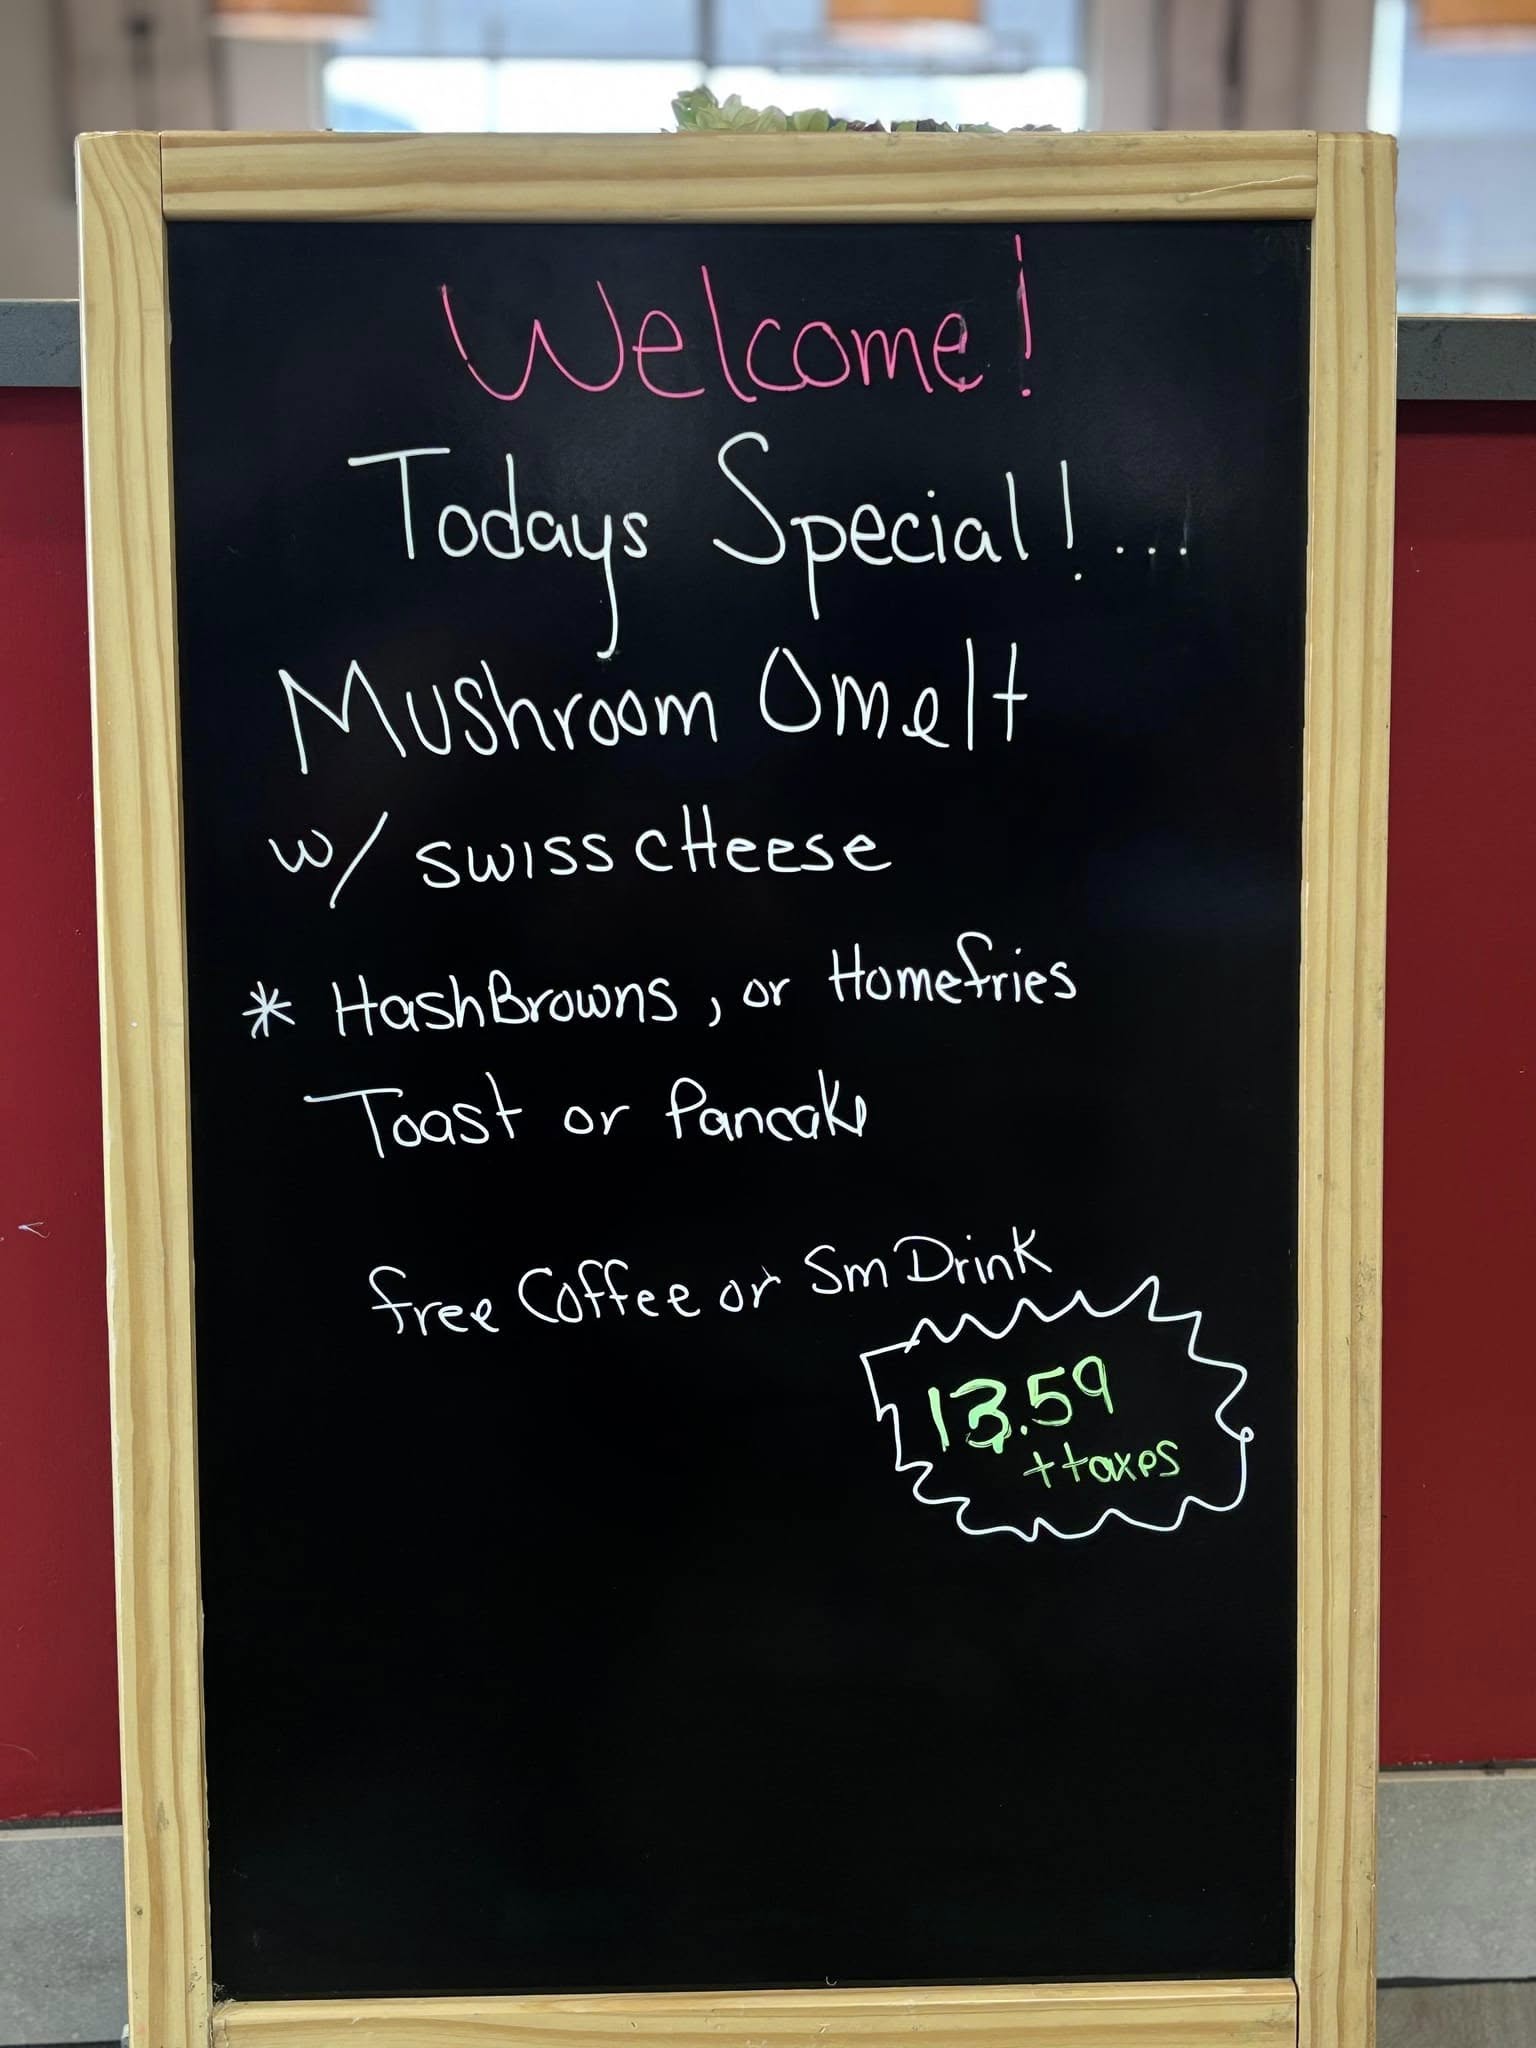 Welcome!
Todays Special!...
Mushroom Omelt
w/ swiss cHeese
* HashBrowns, or Homefries
Toast or Pancake
free Coffee or Sm Drink
13.59
+taxes